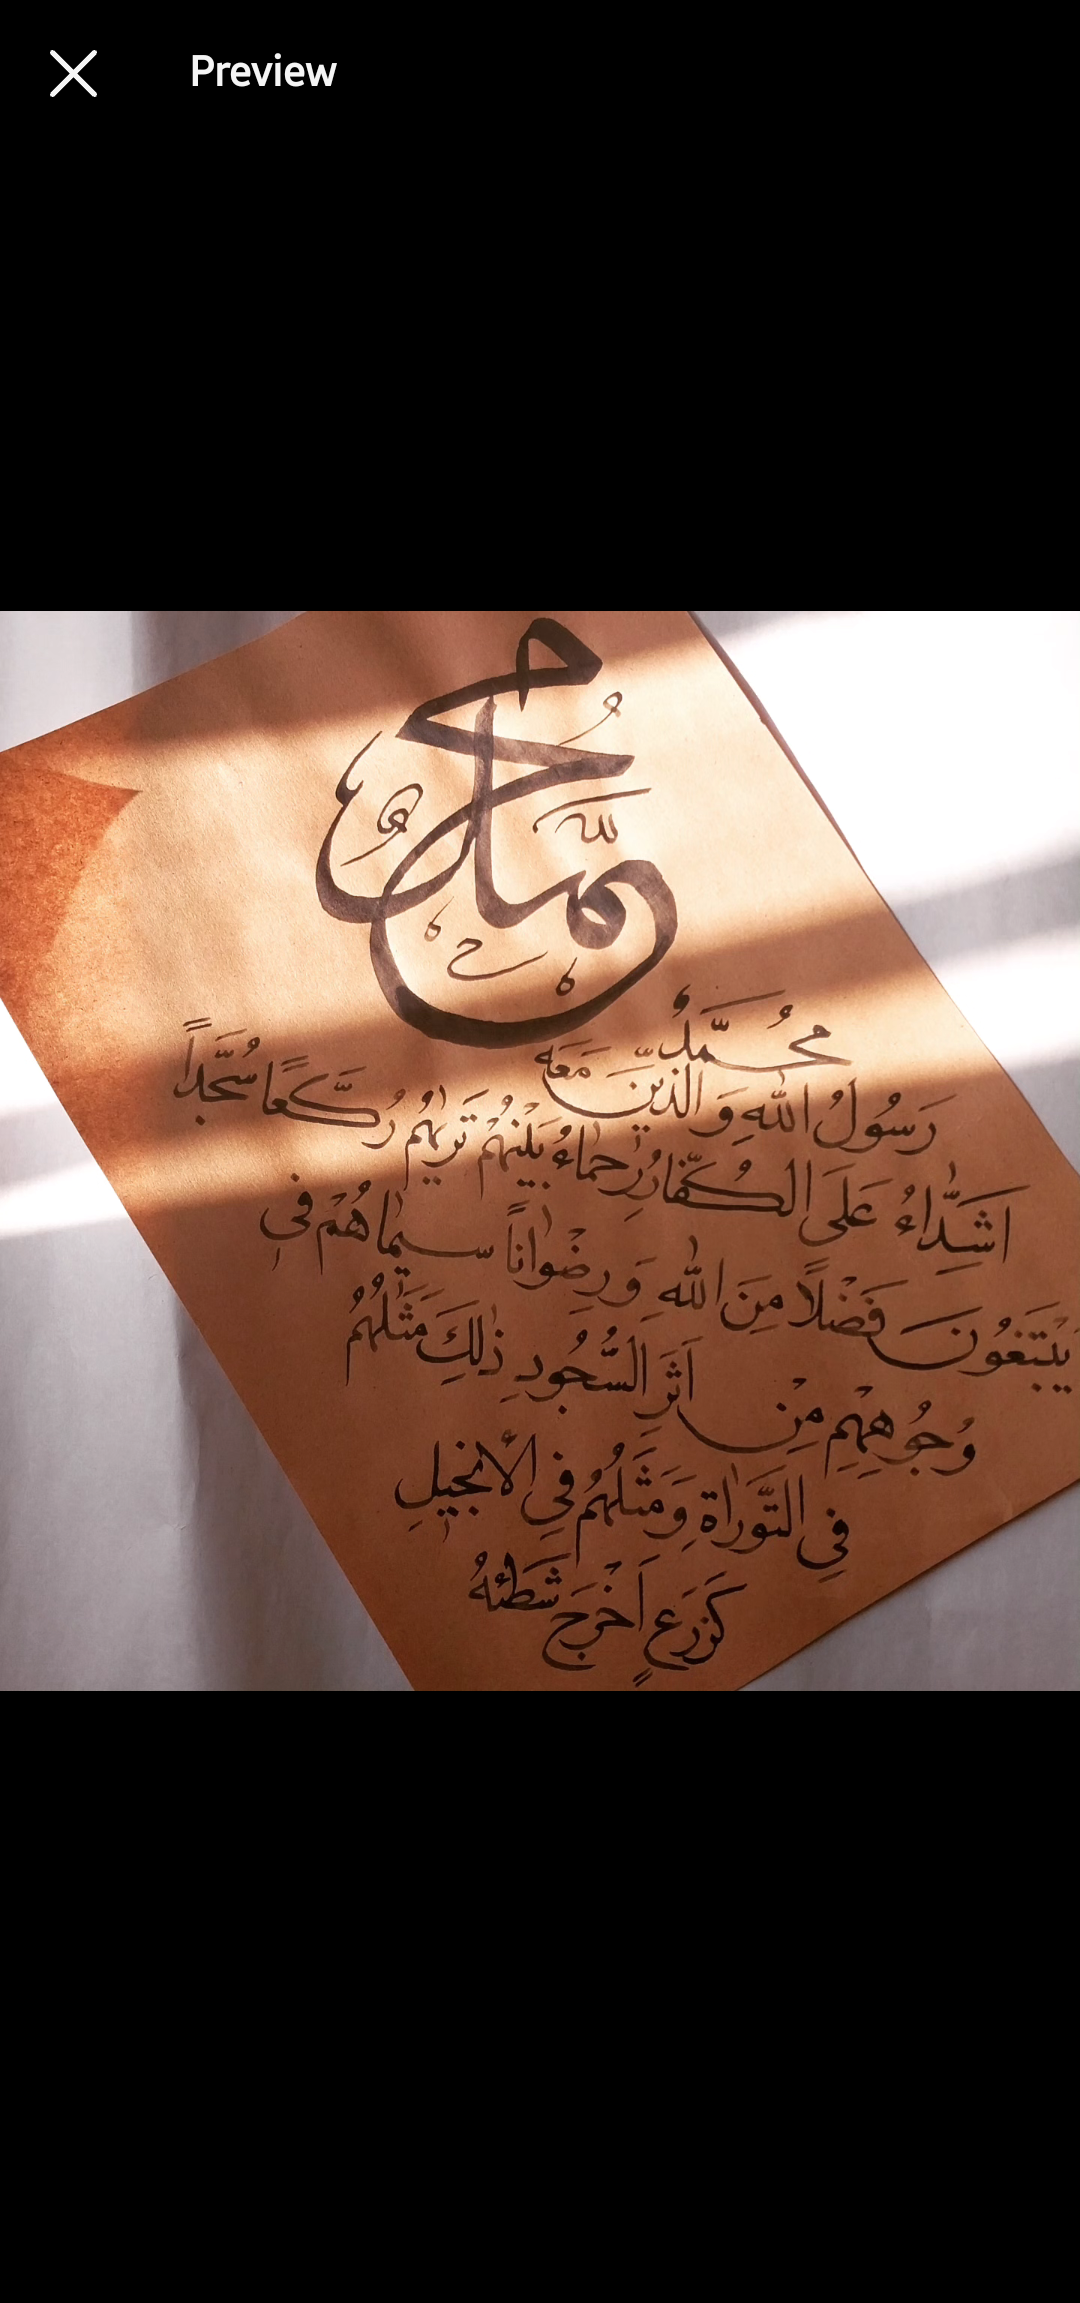 Preview
محمد
مُحَمَّدٌ
رَسُولُ اللّٰهِ وَ الَّذِينَ مَعَهُ
اَشِدَّٓاءُ عَلَى الْكُفَّارِ رُحَمَٓاءُ بَيْنَهُمْ تَرٰيهُمْ رُكَّعًا سُجَّدًا
يَبْتَغُونَ فَضْلًا مِنَ اللّٰهِ وَرِضْوَانًا سِيمَاهُمْ فِي
وُجُوهِهِمْ مِنْ اَثَرِ السُّجُودِ ذٰلِكَ مَثَلُهُمْ
فِي التَّوْرَاةِ وَمَثَلُهُمْ فِي الْاِنْجِيلِ
كَزَرْعٍ اَخْرَجَ شَطْئَهُ